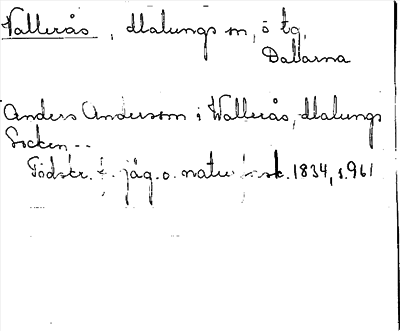 Vallerås, Malungs sn, ö tg,
Dalarna
Anders Anderson i Wallerås, Malungs
Socken --
Tidskr. f. jäg. o. naturforsk. 1834, s. 961